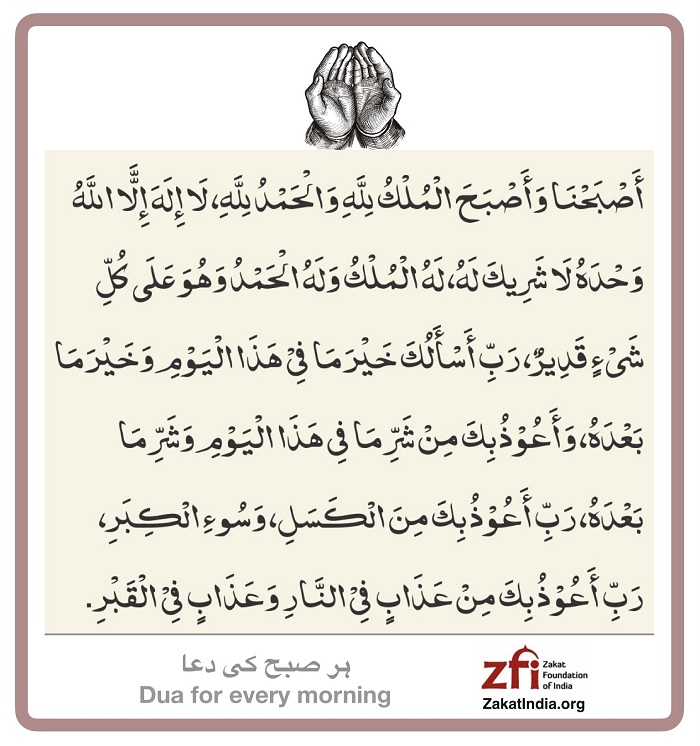 أَصْبَحْنَا وَأَصْبَحَ الْمُلْكُ لِلَّهِ وَالْحَمْدُ لِلَّهِ، لَا إِلَهَ إِلَّا اللَّهُ
وَحْدَهُ لَا شَرِيكَ لَهُ، لَهُ الْمُلْكُ وَلَهُ الْحَمْدُ وَهُوَ عَلَى كُلِّ
شَيْءٍ قَدِيرٌ، رَبِّ أَسْأَلُكَ خَيْرَ مَا فِيْ هَذَا الْيَوْمِ وَخَيْرَ مَا
بَعْدَهُ، وَأَعُوْذُ بِكَ مِنْ شَرِّ مَا فِي هَذَا الْيَوْمِ وَشَرِّ مَا
بَعْدَهُ، رَبِّ أَعُوْذُ بِكَ مِنَ الْكَسَلِ، وَسُوءِ الْكِبَرِ،
رَبِّ أَعُوْذُ بِكَ مِنْ عَذَابٍ فِيْ النَّارِ وَعَذَابٍ فِيْ الْقَبْرِ.
ہر صبح کی دعا
Dua for every morning
zfi Zakat
Foundation
of India
ZakatIndia.org